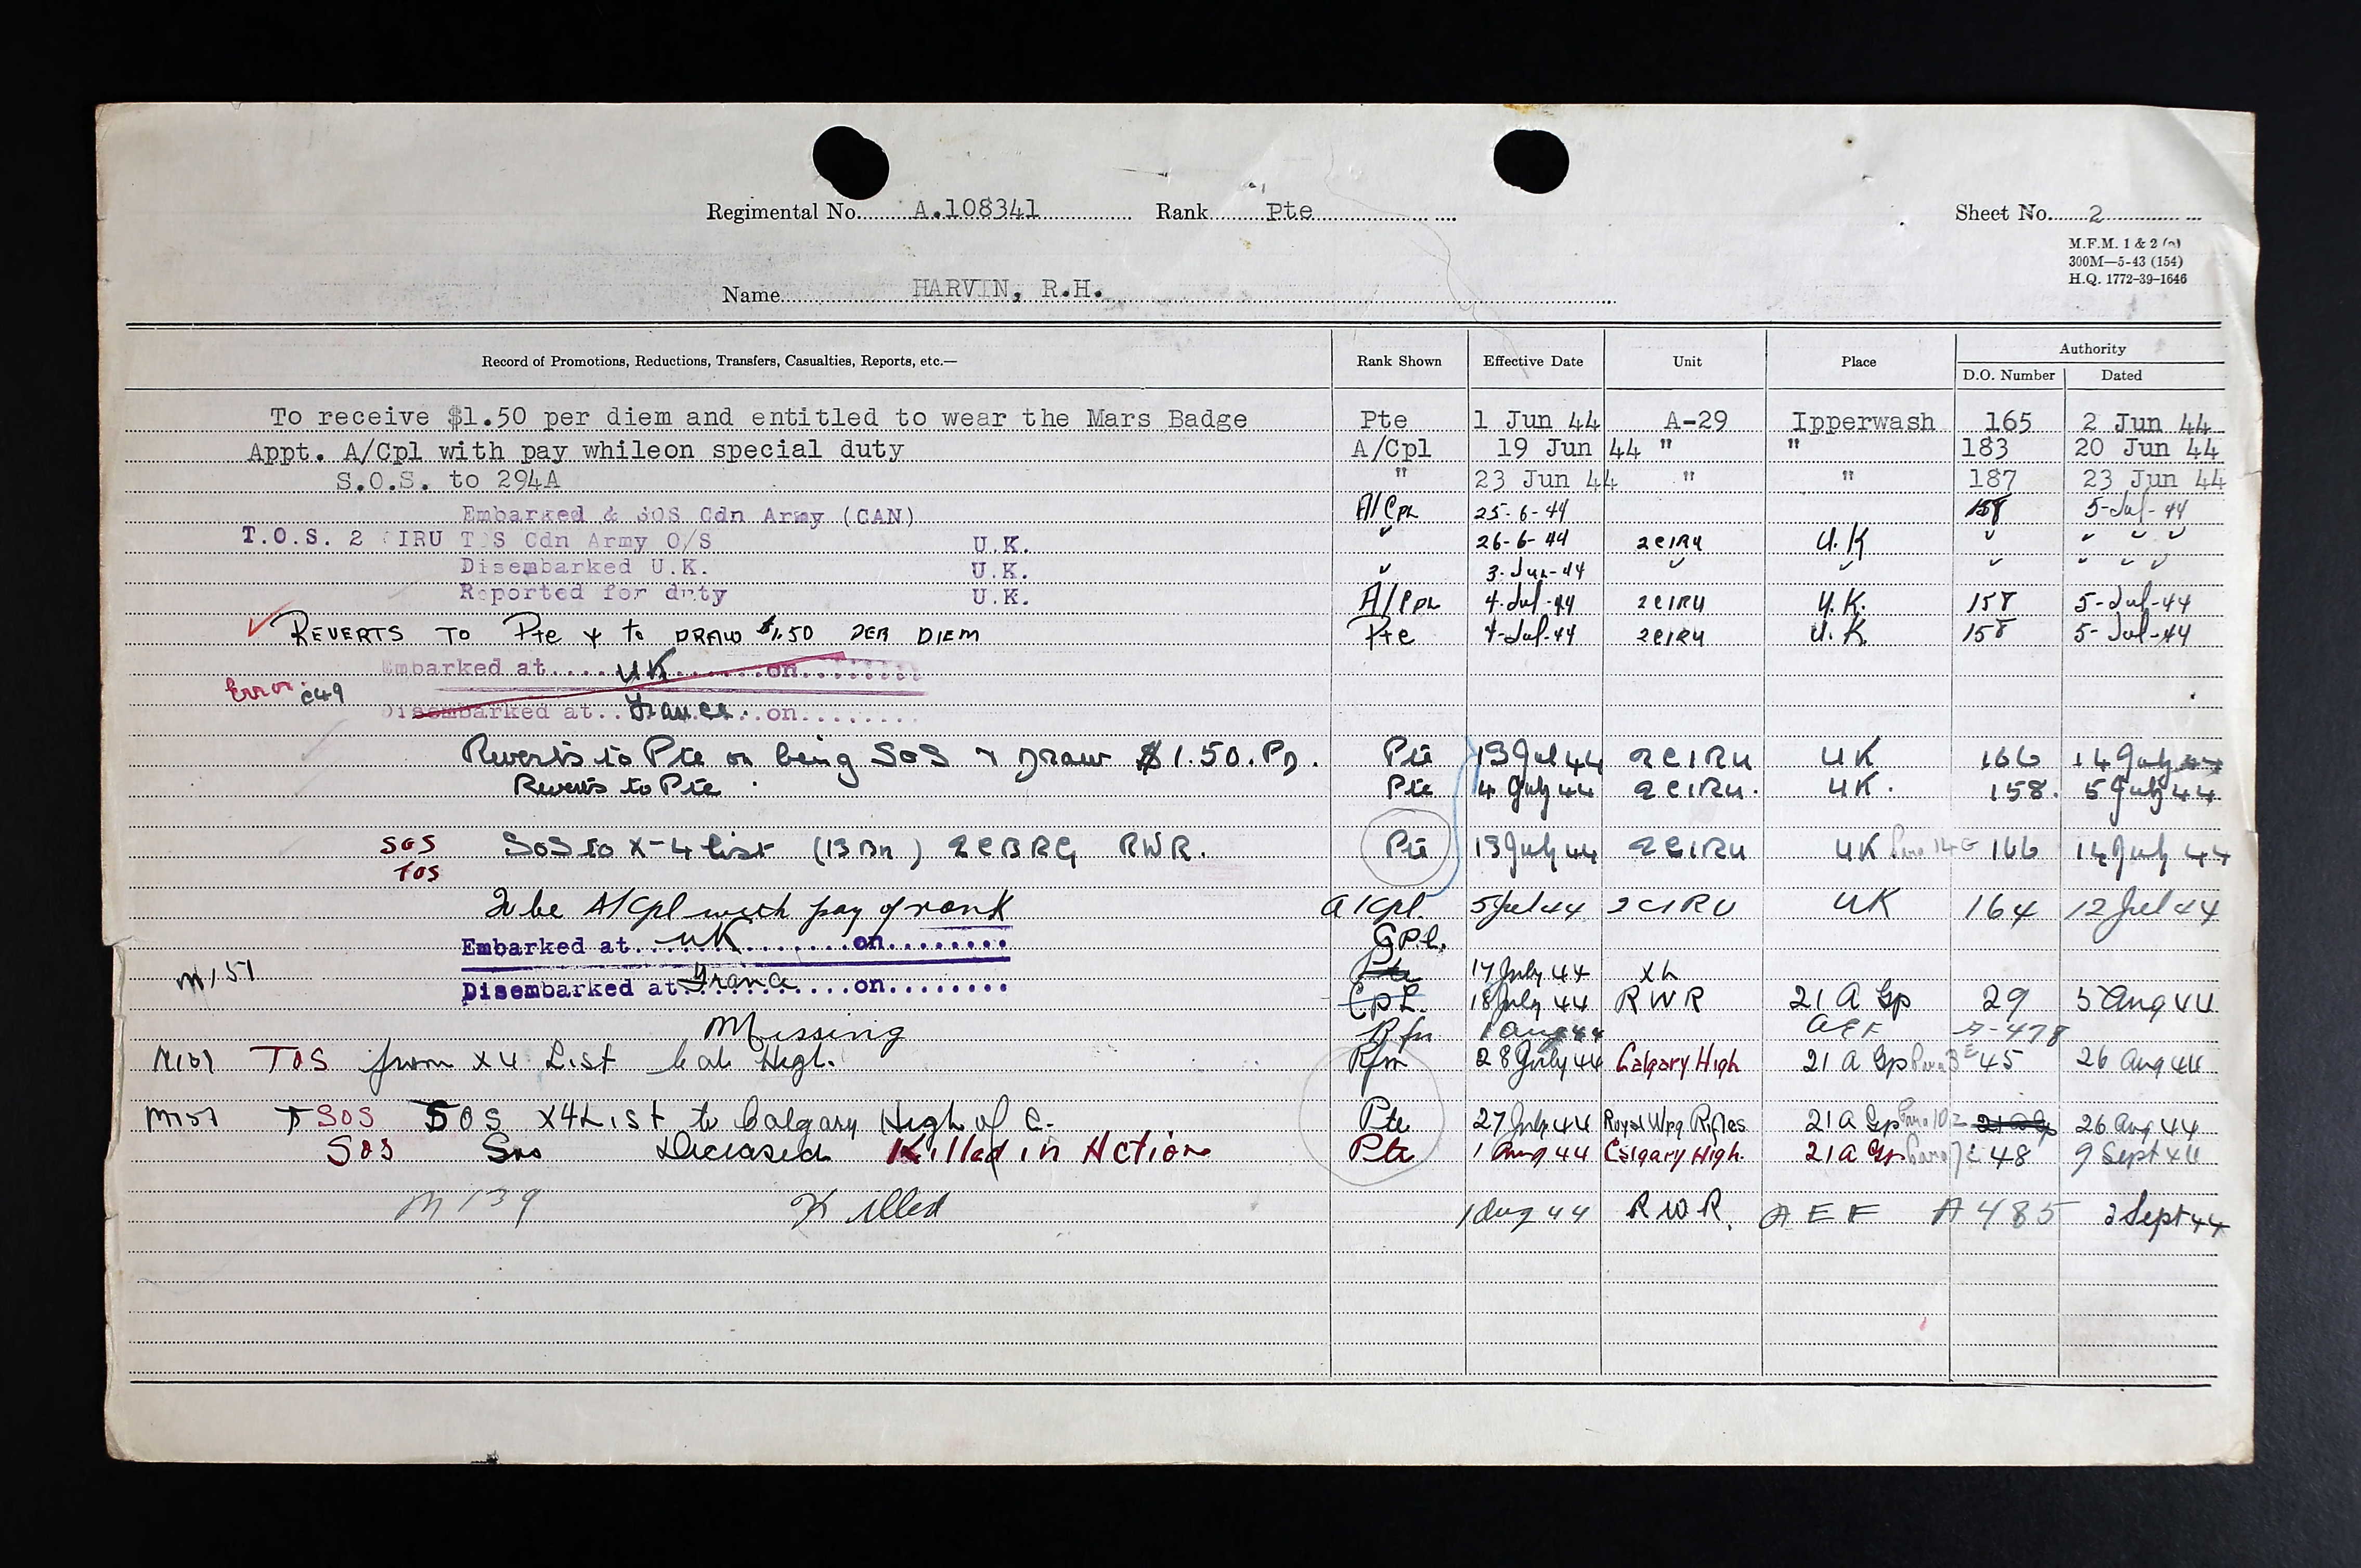 Regimental No. A.108341 Rank Pte Sheet No. 2
M.F.M. 1 & 2
300M—5-43 (154)
H.Q. 1772-39-1646
Name HARVIN, R.H.
Record of Promotions, Reductions, Transfers, Casualties, Reports, etc.— Rank Shown Effective Date Unit Place Authority
D.O. Number Dated
To receive $1.50 per diem and entitled to wear the Mars Badge Pte 1 Jun 44 A-29 Ipperwash 165 2 Jun 44
Appt. A/Cpl with pay whileon special duty A/Cpl 19 Jun 44 " " 183 20 Jun 44
S.O.S. to 294A " 23 Jun 44 " " 187 23 Jun 44
Embarked & SOS Cdn Army (CAN) A/Cpl 25-6-44 158 5-Jul-44
T.O.S. 2 CIRU TOS Cdn Army O/S U.K. " 26-6-44 2CIRU U.K " " " "
Disembarked U.K. U.K. " 3-Jul-44 " " " " " "
Reported for duty U.K. A/Cpl 4-Jul-44 2CIRU U.K. 158 5-Jul-44
REVERTS TO Pte & to DRAW $1.50 PER DIEM Pte 4-Jul-44 2CIRU U.K. 158 5-Jul-44
Embarked at.... UK ......on........
Error. C49
Disembarked at.. France. ..on........
Reverts to Pte on being SOS & Draw $1.50. PD. Pte 13 Jul 44 2CIRU UK 166 14 July 44
Reverts to Pte Pte 4 July 44 2CIRU. UK. 158. 5 July 44
SOS SOS to X-4 List (13 Bn) 2CBRG RWR. Pte 13 July 44 2CIRU UK Para 14 166 14 July 44
TOS
To be A/Cpl with pay of rank A/Cpl. 5 Jul 44 2CIRU UK 164 12 Jul 44
Embarked at.. UK ........on........ Cpl.
M151 Pte 17 July 44 XL
Disembarked at France ....on........ Cpl. 18 July 44 RWR 21 A Gp 29 5 Aug 44
Missing Rfn 1 Aug 44 AEF A-478
TOS from X4 List Cal. High. Rfm 28 July 44 Calgary High 21 A Gp Para 3 45 26 Aug 44
M151 SOS SOS X4 List to Calgary High of C. Pte 27 July 44 Royal Wpg Rifles 21 A Gp Para 10 21 A Gp 26 Aug 44
SOS Sos Deceased Killed in Action Pte 1 Aug 44 Calgary High. 21 A Gp Para 7 48 9 Sept 44
M139 Killed 1 Aug 44 RWR. AEF A485 2 Sept 44